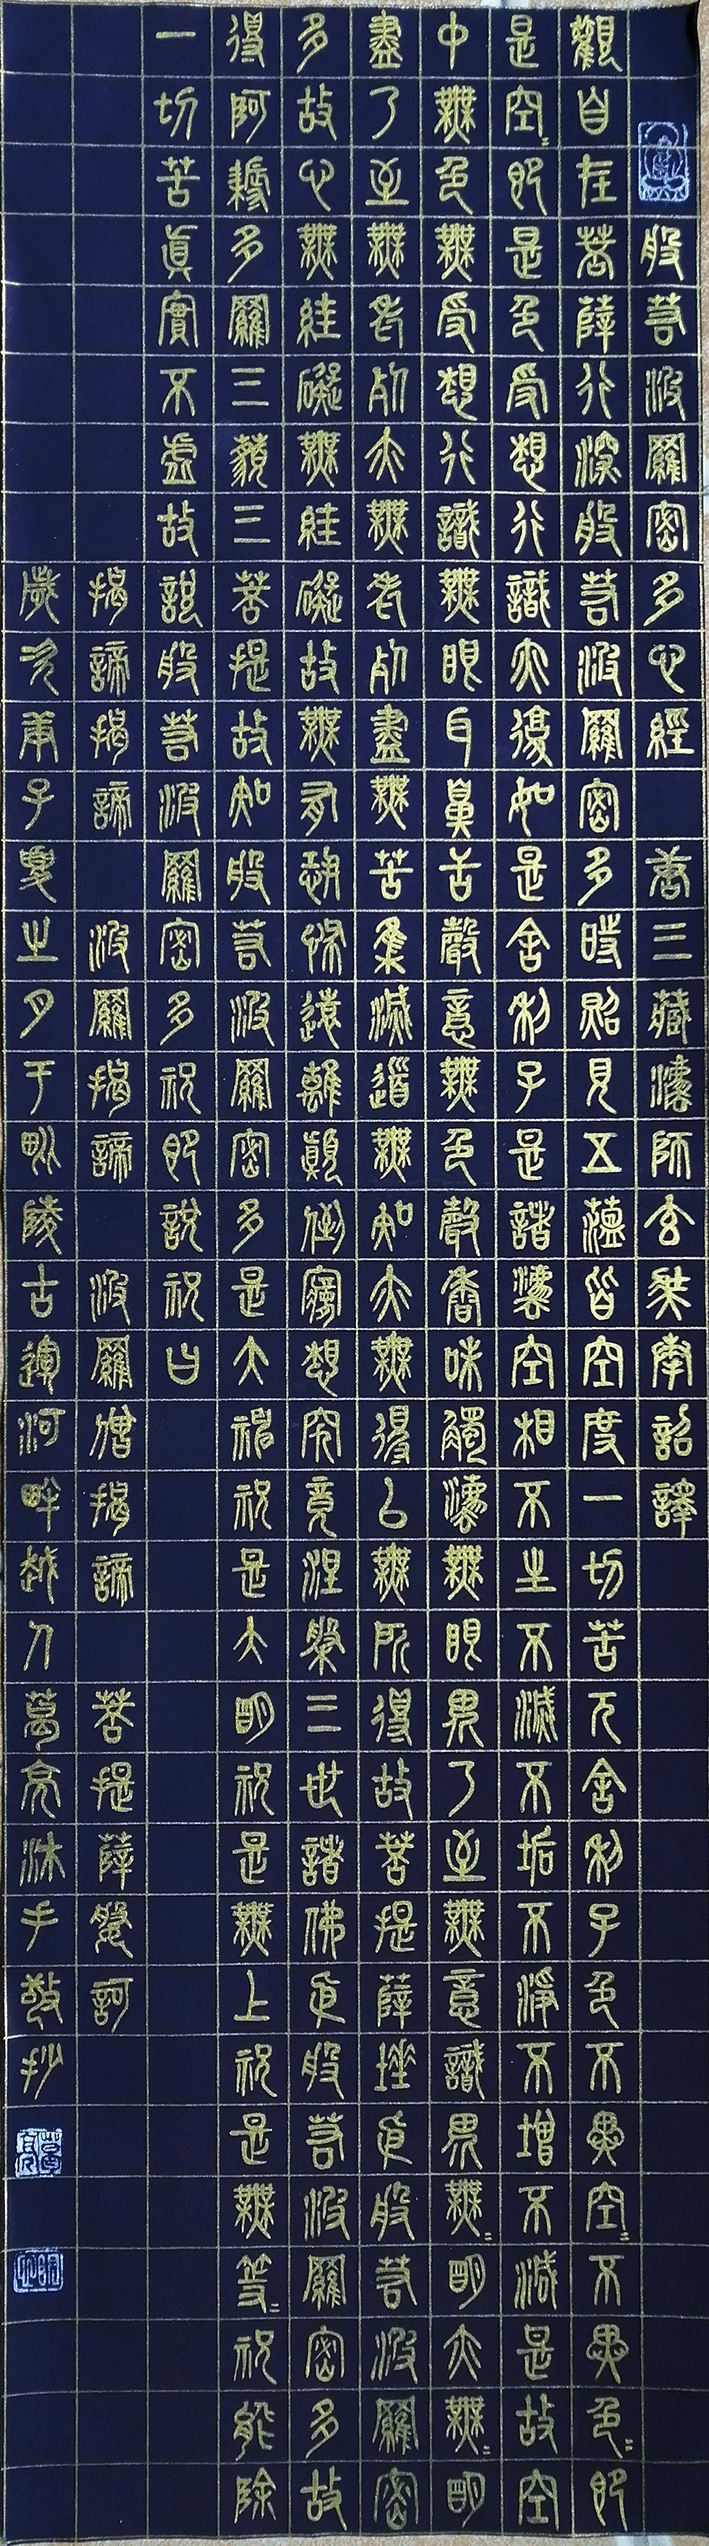 般若波羅密多心經 唐三藏法師玄奘奉詔譯
觀自在菩薩行深般若波羅密多時照見五蘊皆空度一切苦厄舍利子色不異空〻不異色〻即
是空〻即是色受想行識亦復如是舍利子是諸法空相不生不滅不垢不淨不增不減是故空
中無色無受想行識無眼耳鼻舌聲意無色聲香味觸法無眼界乃至無意識界無〻明亦無〻明
盡乃至無老死亦無老死盡無苦集滅道無知亦無得以無所得故菩提薩埵依般若波羅密
多故心無絓礙無絓礙故無有恐怖遠離顛倒夢想究竟涅槃三世諸佛依般若波羅密多故
得阿耨多羅三藐三菩提故知般若波羅密多是大神祝是大明祝是無上祝是無等〻祝能除
一切苦眞實不虛故說般若波羅密多祝即說祝曰
揭諦揭諦 波羅揭諦 波羅僧揭諦 菩提薩婆訶
歲次庚子夏之月于毗陵古運河畔越人萬亮沐手敬抄